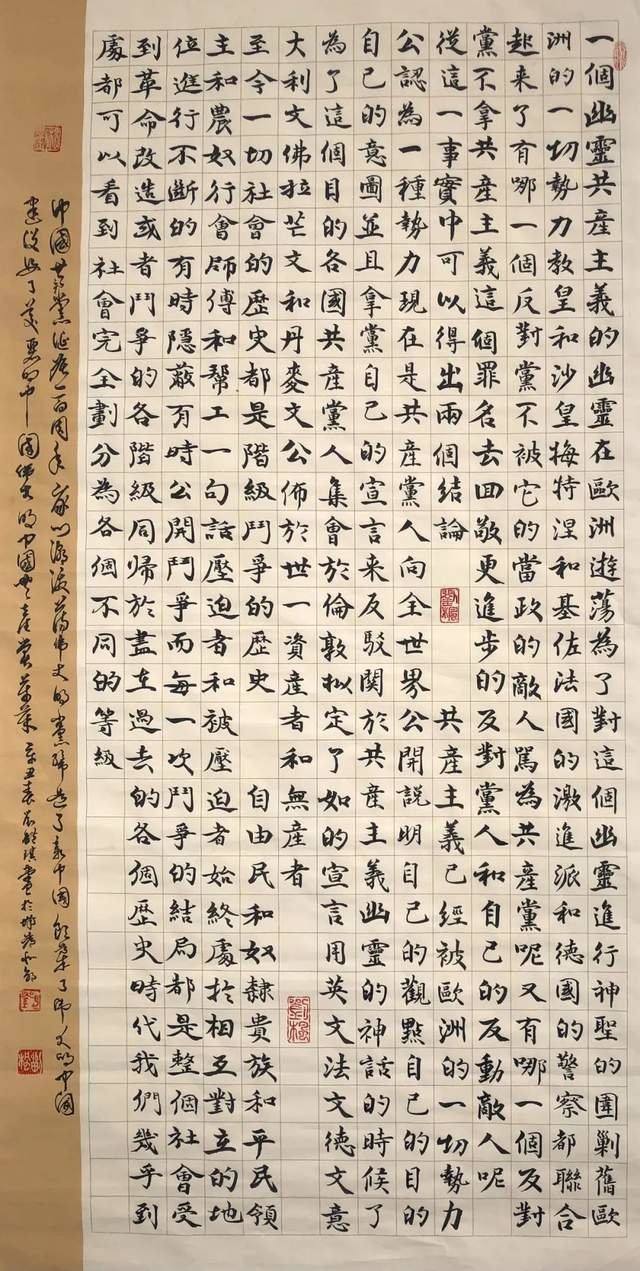 一個幽靈共產主義的幽靈在歐洲遊蕩為了對這個幽靈進行神聖的圍剿舊歐
洲的一切勢力教皇和沙皇梅特涅和基佐法國的激進派和德國的警察都聯合
起來了有哪一個反對黨不被它的當政的敵人罵為共產黨呢又有哪一個反對
黨不拿共產主義這個罪名去回敬更進步的反對黨人和自己的反動敵人呢
從這一事實中可以得出兩個結論 共產主義已經被歐洲的一切勢力
公認為一種勢力現在是共產黨人向全世界公開說明自己的觀點自己的目的
自己的意圖並且拿黨自己的宣言来反駁関於共產主義幽靈的神話的時候了
為了這個目的各國共產黨人集會於倫敦拟定了如的宣言用英文法文德文意
大利文佛拉芒文和丹麥文公佈於世一資產者和無產者
至今一切社會的歷史都是階級鬥爭的歷史 自由民和奴隸貴族和平民領
主和農奴行會師傅和幫工一句話壓迫者和被壓迫者始終處於相互對立的地
位進行不斷的有時隱蔽有時公開鬥爭而每一次鬥爭的結局都是整個社會受
到革命改造或者鬥爭的各階級同歸於盡在過去的各個歷史時代我們幾乎到
處都可以看到社會完全劃分為各個不同的等級
中國共產黨誕辰一百周年
辛丑春